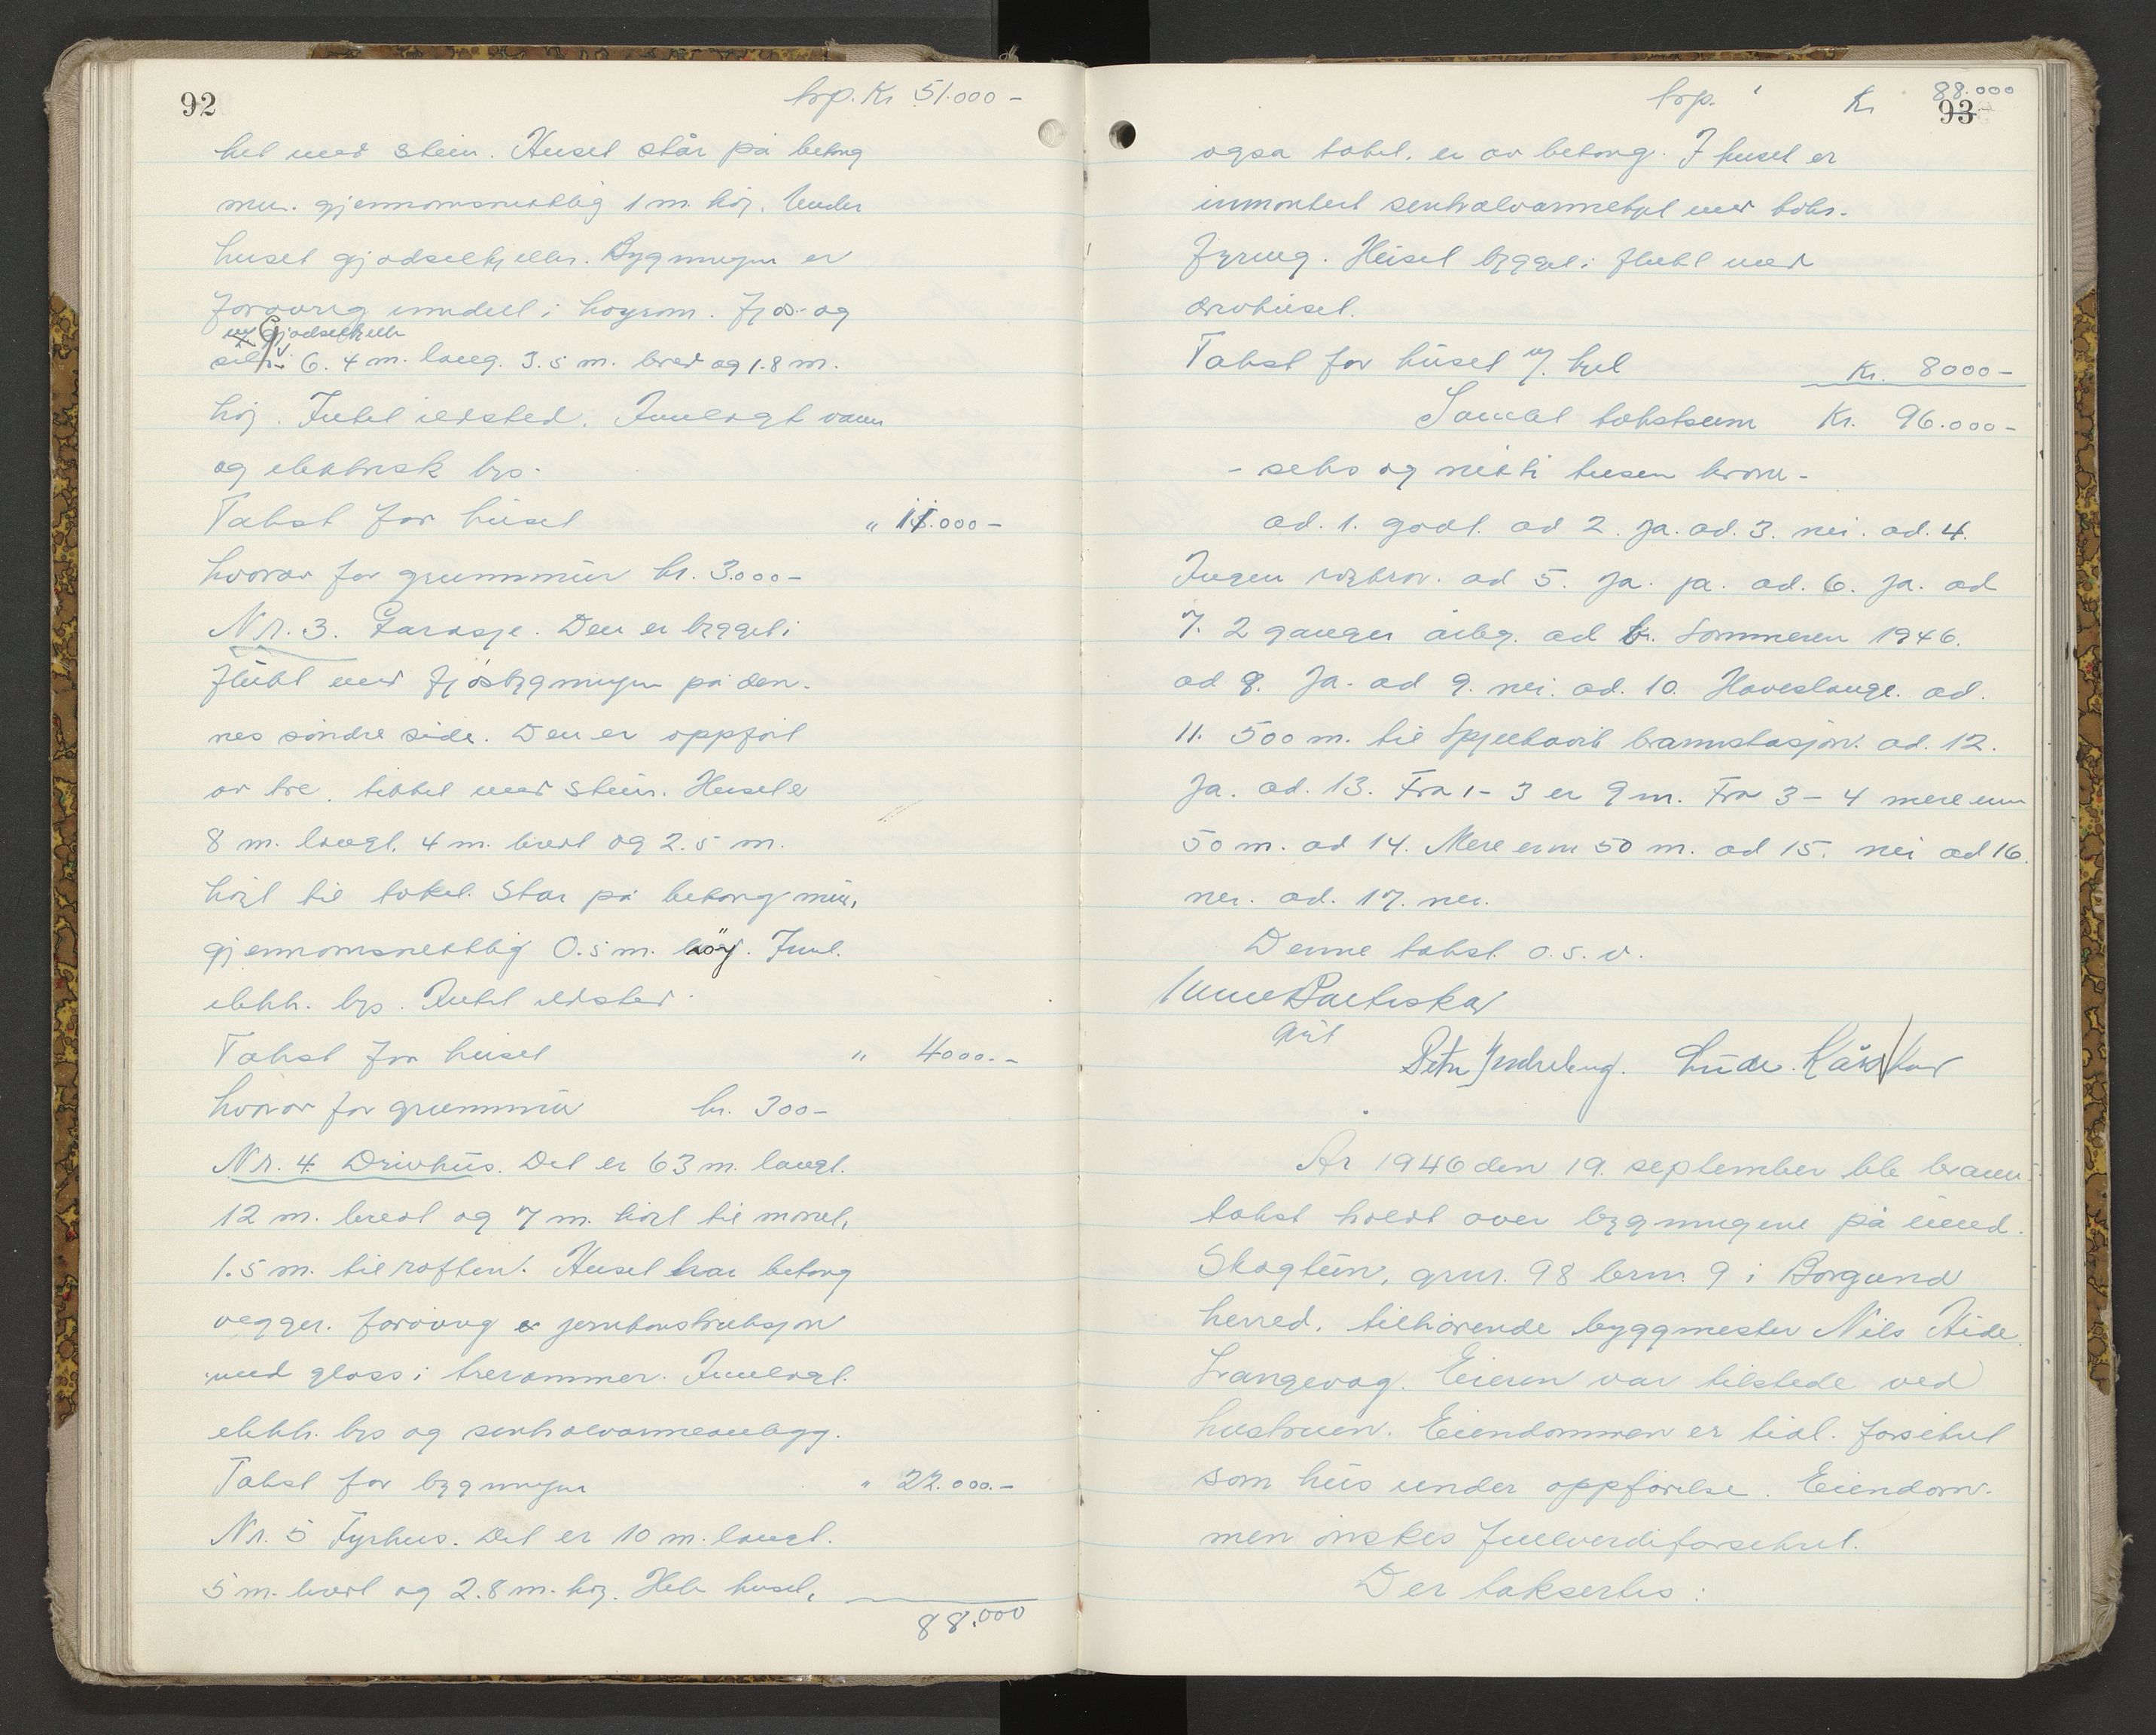 92
trp. Kr 51.000 -
ket med stein. Huset står på betong
mur. gjennomsnittlig 1 m. høg. Under
huset gjødselkjeller. Bygningen er
forøvrig inndelt i høyrom. fjøs- og
m/ Gjødselkjeller
silo. 6.4 m. lang. 3.5 m. bred og 1.8 m.
høg. Intet ildsted. Innlagt vann
og elektrisk lys.
Takst for huset " 11.000 -
hvorav for grunnmur kr. 3.000 -
Nr. 3. Garasje. Den er bygget i
flukt med fjøsbygningen på den-
nes søndre side. Den er oppført
av tre. tekket med stein. Huset er
8 m. langt. 4 m. bredt og 2.5 m.
høgt til taket. Står på betong mur,
gjennomsnittlig 0.5 m. høy. Innl.
elektr. lys. Intet ildsted.
Takst for huset " 4000. -
hvorav for grunnmur kr. 300 -
Nr. 4. Drivhus. Det er 63 m. langt.
12 m. bredt og 7 m. høgt til mønet,
1.5 m. til raften. Huset har betong
vegger. forøvrig er jernkonstruksjon
med glass i trerammer. Innlagt.
elektr. lys og sentralvarmeanlegg.
Takst for bygningen " 22.000. -
Nr. 5 Fyrhus. Det er 10 m. langt.
5 m. bredt og 2.8 m. høg. Hele huset,
88.000
93
trp. Kr 88.000
også taket. er av betong. I huset er
innmontert sentralvarmekjel med koks-
fyring. Huset bygget i flukt med
drivhuset.
Takst for huset m/. kjel Kr. 8000 -
Samlet takstsum Kr. 96.000 -
- seks og nitti tusen kroner -
ad. 1. godt. ad 2. Ja. ad. 3. nei. ad. 4.
Ingen ad 5. Ja. ja. ad. 6. Ja. ad
7. 2 ganger årlig. ad Sommeren 1946.
ad 8. Ja. ad 9. nei. ad. 10. Haveslange. ad.
11. 500 m. til Spjelkavik brannstasjon. ad. 12.
Ja. ad. 13. Fra 1 - 3 er 9 m. Fra 3 - 4 mere enn
50 m. ad 14. Mere enn 50 m. ad 15. nei ad 16.
nei. ad. 17. nei.
Denne takst o. s. v.
Petter Indreberg.
År 1946 den 19. september ble brann-
takst holdt over bygningene på eiend.
Skogtun, gnr. 98 brn. 9 i Borgund
herred. tilhørende byggmester Nils Eide
Langevåg. Eieren var tilstede ved
hustruen. Eiendommen er tidl. forsikret
som hus under oppførelse. Eiendom-
men ønskes fullverdiforsikret.
Der taksertes: